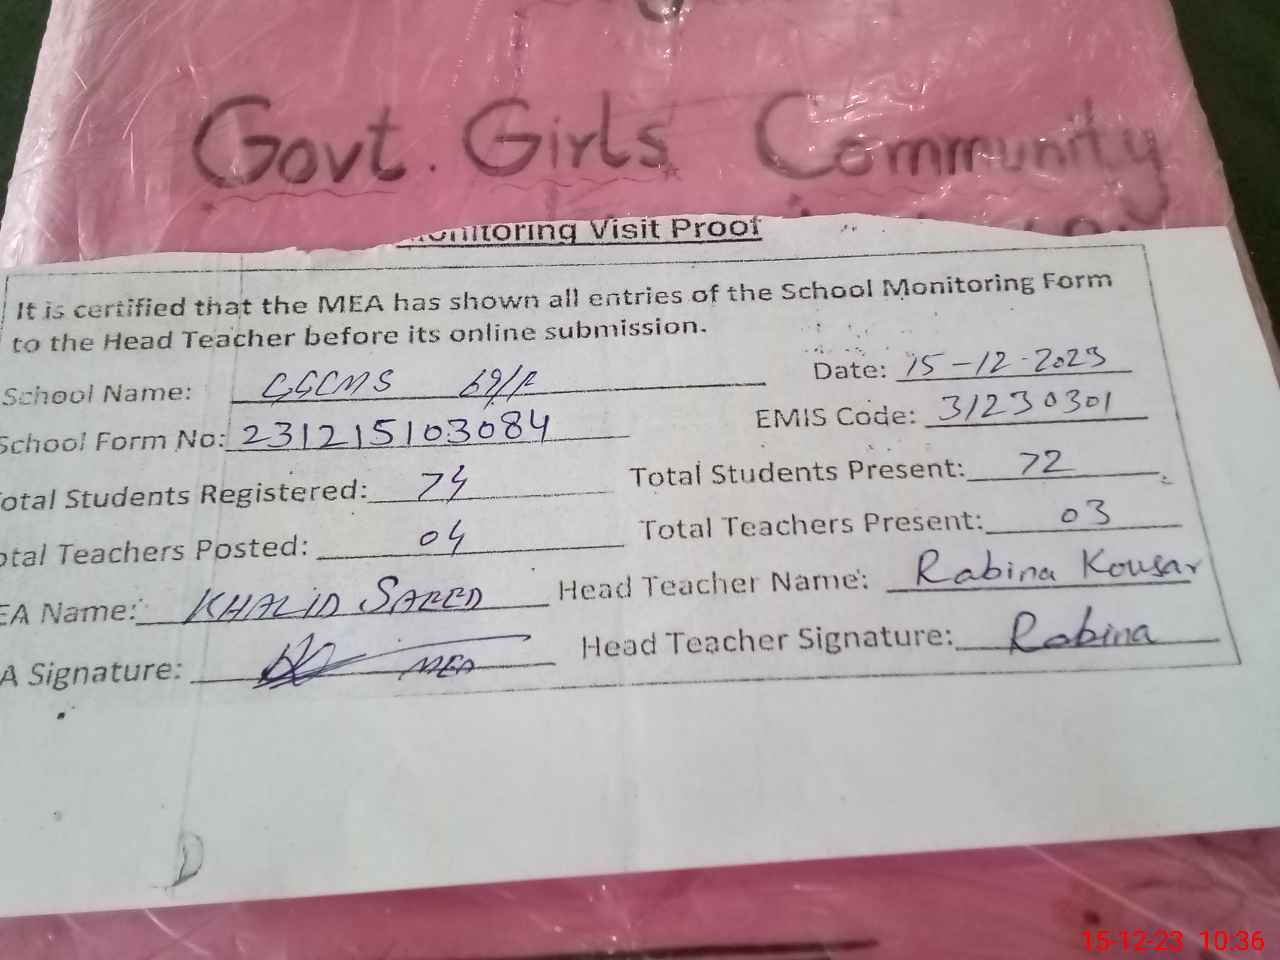 Govt. Girls Community
Monitoring Visit Proof
It is certified that the MEA has shown all entries of the School Monitoring Form
to the Head Teacher before its online submission.
School Name: GGCMS 69/F Date: 15-12-2023
School Form No: 231215103084 EMIS Code: 31230301
otal Students Registered: 74 Total Students Present: 72
otal Teachers Posted: 04 Total Teachers Present: 03
EA Name: KHALID SAEED Head Teacher Name: Rabina Kousar
A Signature: MEA Head Teacher Signature: Rabina
15-12-23 10:36